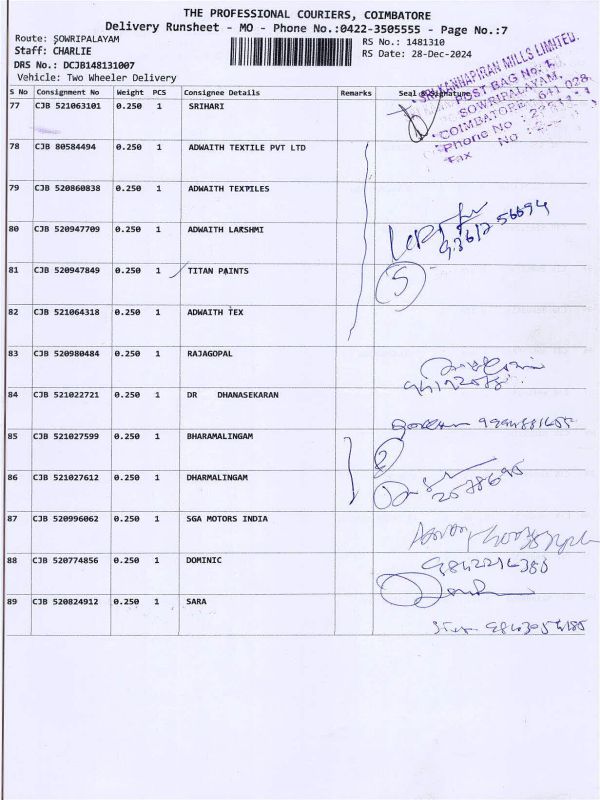 THE PROFESSIONAL COURIERS, COIMBATORE
Delivery Runsheet - MO - Phone No.:0422-3505555 - Page No.:7
Route: SOWRIPALAYAM RS No.: 1481310
Staff: CHARLIE RS Date: 28-Dec-2024
DRS No.: DCJB148131007
Vehicle: Two Wheeler Delivery
S No Consignment No Weight PCS Consignee Details Remarks Seal & Signature
77 CJB 521063101 0.250 1 SRIHARI
SRI KANNAPIRAN MILLS LIMITED.
POST BAG No. 1,
SOWRIPALAYAM,
COIMBATORE - 641 028
Phone No :
Fax No :
78 CJB 80584494 0.250 1 ADWAITH TEXTILE PVT LTD
79 CJB 520860838 0.250 1 ADWAITH TEXTILES
80 CJB 520947709 0.250 1 ADWAITH LAKSHMI
81 CJB 520947849 0.250 1 TITAN PAINTS
5
82 CJB 521064318 0.250 1 ADWAITH TEX
83 CJB 520980484 0.250 1 RAJAGOPAL
84 CJB 521022721 0.250 1 DR DHANASEKARAN
85 CJB 521027599 0.250 1 BHARAMALINGAM
2
86 CJB 521027612 0.250 1 DHARMALINGAM
87 CJB 520996062 0.250 1 SGA MOTORS INDIA
88 CJB 520774856 0.250 1 DOMINIC
89 CJB 520824912 0.250 1 SARA